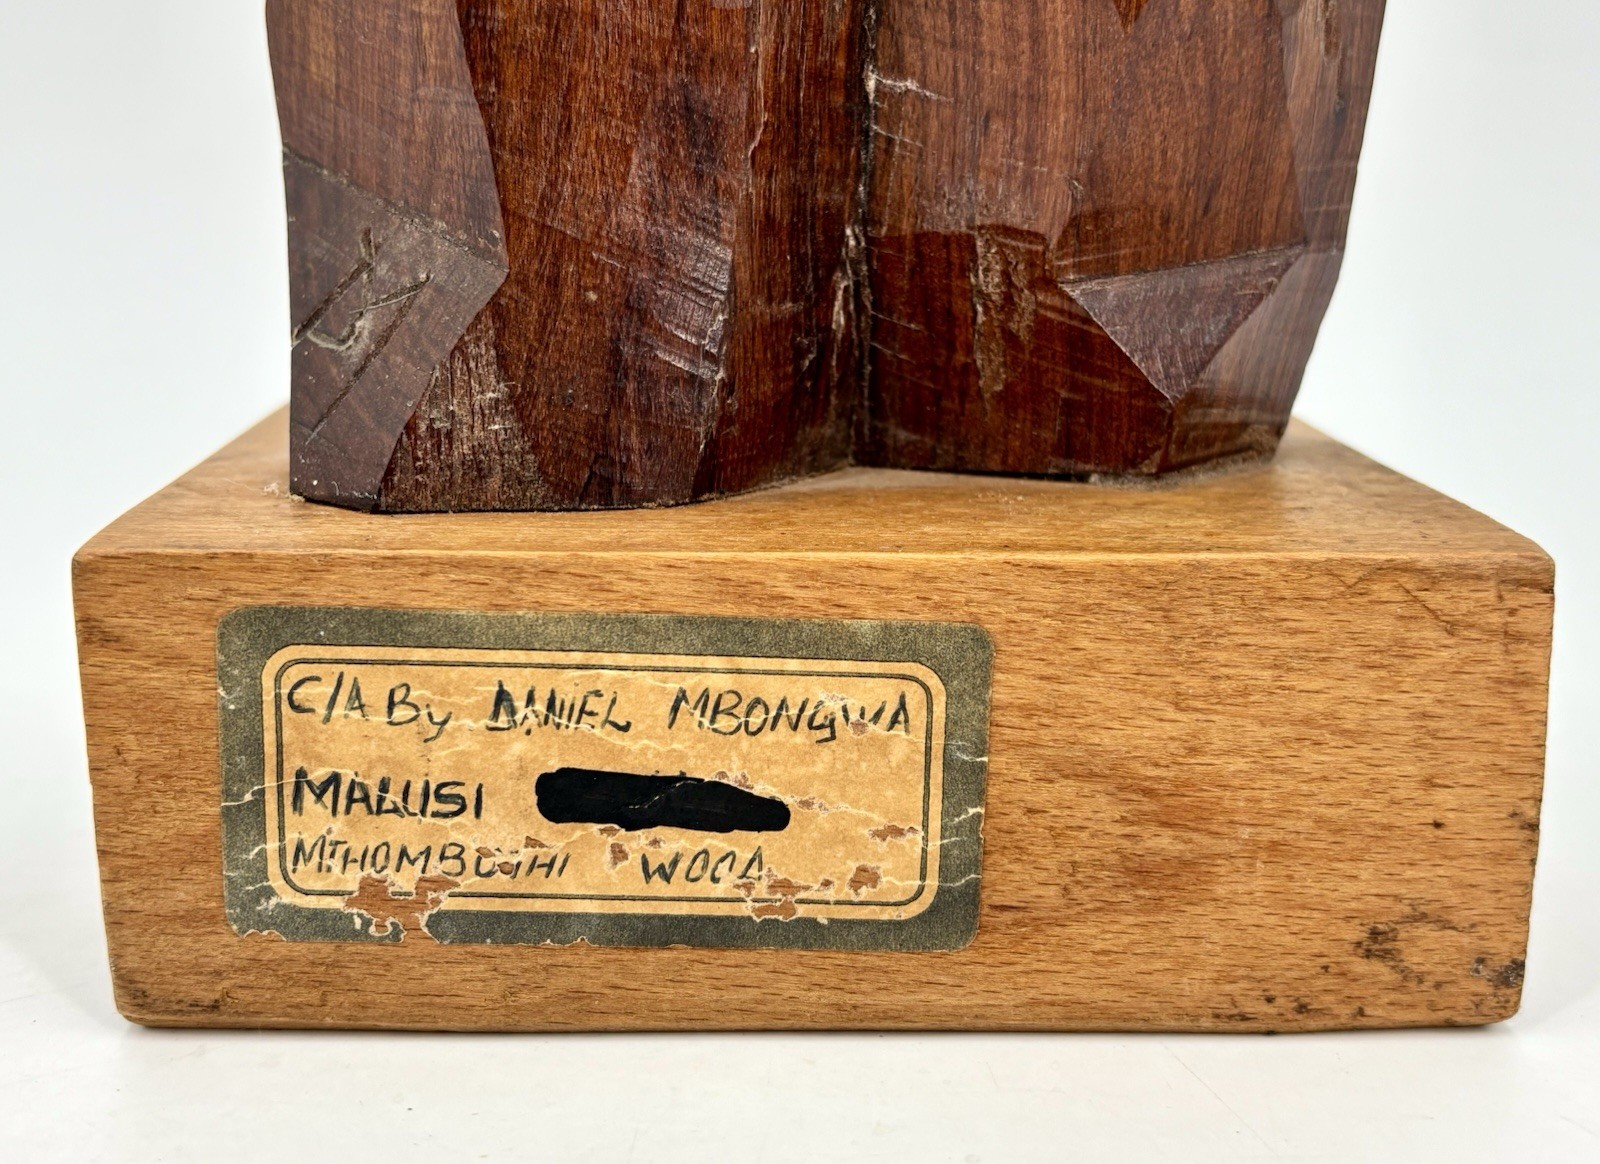 C/A By DANIEL MBONGWA
MALUSI
MTHOMBOTHI WOOD